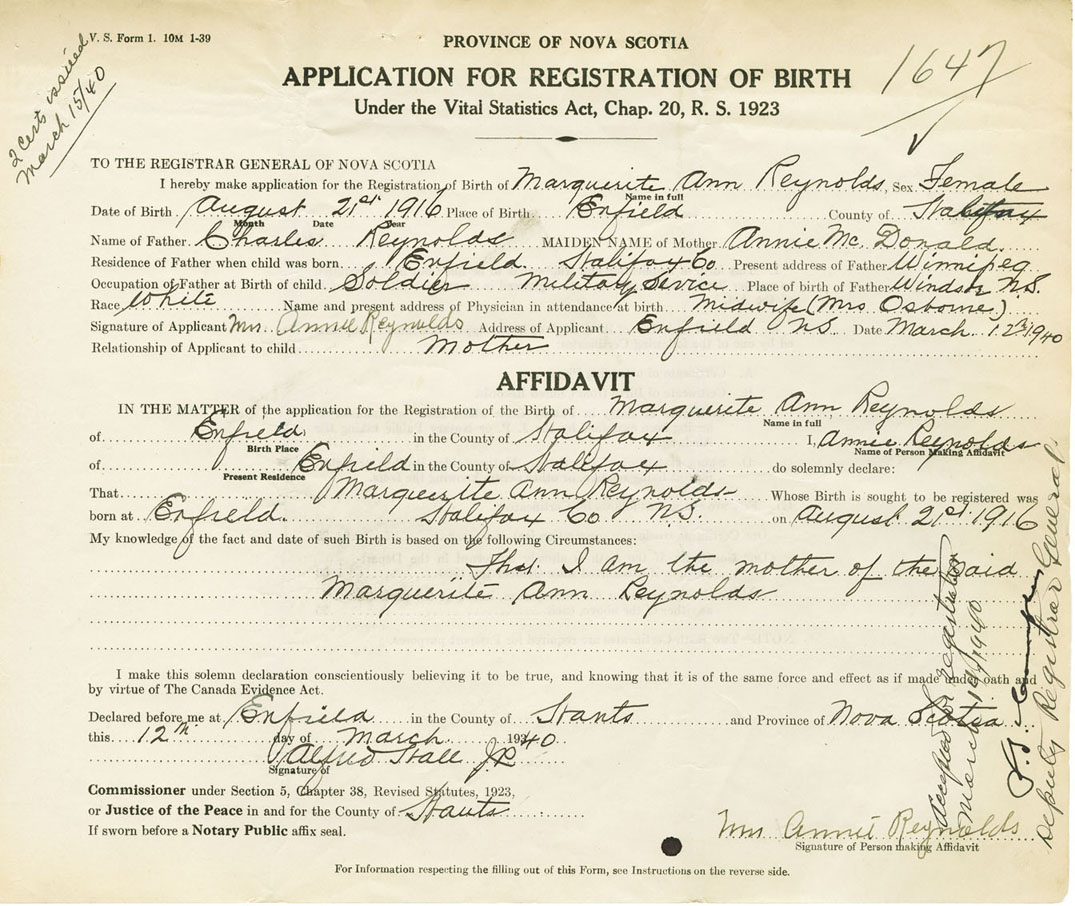 V. S. Form 1. 10M 1-39
2 Certs issued
March 15/40
PROVINCE OF NOVA SCOTIA
1647
APPLICATION FOR REGISTRATION OF BIRTH
Under the Vital Statistics Act, Chap. 20, R. S. 1923
TO THE REGISTRAR GENERAL OF NOVA SCOTIA
I hereby make application for the Registration of Birth of Marguerite Ann Reynolds, Sex Female
Name in full
Date of Birth August 21st 1916 Place of Birth Enfield County of Halifax
Month Date Year
Name of Father Charles Reynolds MAIDEN NAME of Mother Annie Mc Donald
Residence of Father when child was born Enfield Halifax Co Present address of Father Winnipeg
Occupation of Father at Birth of child Soldier Military Service Place of birth of Father Windsor N.S.
Race White Name and present address of Physician in attendance at birth midwife (Mrs Osborne)
Signature of Applicant Mrs. Annie Reynolds Address of Applicant Enfield NS Date March 12th 1940
Relationship of Applicant to child Mother
AFFIDAVIT
IN THE MATTER of the application for the Registration of the Birth of Marguerite Ann Reynolds
Name in full
of Enfield in the County of Halifax I, Annie Reynolds
Birth Place Name of Person Making Affidavit
of Enfield in the County of Halifax do solemnly declare:
Present Residence
That Marguerite Ann Reynolds Whose Birth is sought to be registered was
born at Enfield Halifax Co N.S. on August 21st 1916
My knowledge of the fact and date of such Birth is based on the following Circumstances:
That I am the mother of the said
Marguerite Ann Reynolds
I make this solemn declaration conscientiously believing it to be true, and knowing that it is of the same force and effect as if made under oath and
by virtue of The Canada Evidence Act.
Declared before me at Enfield in the County of Hants and Province of Nova Scotia
this 12th day of March 1940
Alfred Hall JP
Signature of
Commissioner under Section 5, Chapter 38, Revised Statutes, 1923,
or Justice of the Peace in and for the County of Hants
If sworn before a Notary Public affix seal.
Mrs Annie Reynolds
Signature of Person making Affidavit
For Information respecting the filling out of this Form, see Instructions on the reverse side.
Accepted for registration
March 1940
Deputy Registrar General